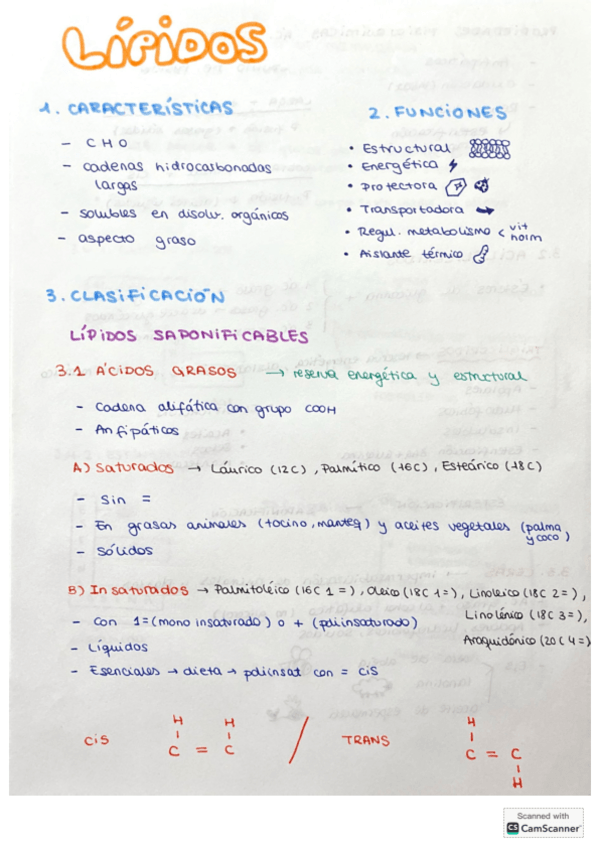 LÍPIDOS
1. CARACTERÍSTICAS
- C H O
- cadenas hidrocarbonadas
largas
- solubles en disolv. orgánicos
- aspecto graso
2. FUNCIONES
• Estructural
• Energética
• Protectora
• Transportadora
• Regul. metabolismo < vit
horm
• Aislante térmico
3. CLASIFICACIÓN
LÍPIDOS SAPONIFICABLES
3.1 ÁCIDOS GRASOS → reserva energética y estructural
- Cadena alifática con grupo COOH
- Anfipáticos
A) Saturados → Láurico (12C), Palmítico (16C), Esteárico (18C)
- Sin =
- En grasas animales (tocino, manteq) y aceites vegetales (palma
y coco)
- Sólidos
B) Insaturados → Palmitoléico (16C 1=), Oleico (18C 1=), Linoleico (18C 2=),
Linolénico (18C 3=),
Araquidónico (20C 4=)
- Con 1= (monoinsaturado) o + (poliinsaturado)
- Líquidos
- Esenciales → dieta → poliinsat con = cis
CIS
H H
C = C
/
TRANS
H
C = C
H
Scanned with
CS CamScanner